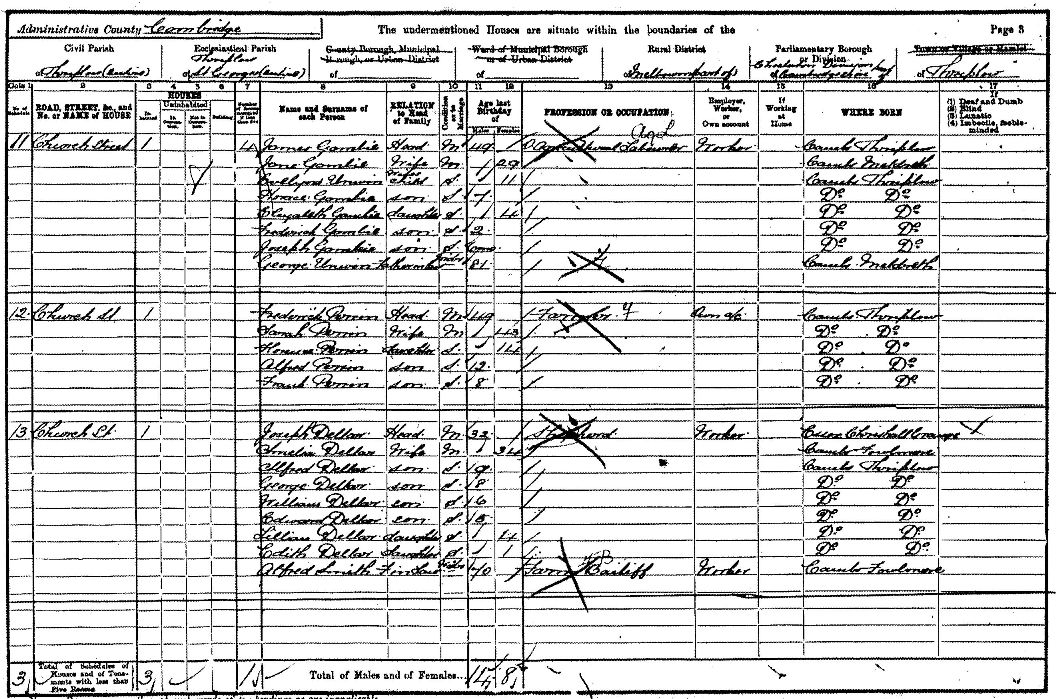 Administrative County Cambridge The undermentioned Houses are situate within the boundaries of the Page 3
Civil Parish Ecclesiastical Parish County Borough, Municipal Borough, or Urban District Ward of Municipal Borough or of Urban District Rural District Parliamentary Borough or Division Town or Village or Hamlet
of Thriplow of St George of of of of Thriplow
Cols 1 2 3 4 5 6 7 8 9 10 11 12 13 14 15 16 17
ROAD, STREET, &c., and No. or NAME of HOUSE HOUSES Uninhabited Building Name and Surname of each Person RELATION to Head of Family Condition as to Marriage Age last Birthday of Males Females PROFESSION OR OCCUPATION Employer, Worker, or Own account If Working at Home WHERE BORN If (1) Deaf and Dumb (2) Blind (3) Lunatic (4) Imbecile, feeble-minded
11 Church Street 1 4 James Gambie Head M 49 Agricultural Labourer Ag L Worker Cambs Thriplow
Jane Gambie Wife M Cambs Meldreth
Unwin Child S 11 Cambs Thriplow
Horace Gambie son S 7 Do Do
Elizabeth Gambie daughter S 4 Do Do
Frederick Gambie son S 2 Do Do
Joseph Gambie son S Do Do
George Unwin 81 Cambs Meldreth
12 Church St 1 Frederick Perrin Head M 49 Farmer 4 Own a/c Cambs Thriplow
Sarah Perrin Wife M 43 Do Do
Florence Perrin daughter S 14 Do Do
Alfred Perrin son S 12 Do Do
Frank Perrin son S 8 Do Do
13 Church St 1 Joseph Dellar Head M 32 Shepherd Worker Essex Chrishall Grange
Amelia Dellar Wife M 34 Cambs Fowlmere
Alfred Dellar son S 9 Cambs Thriplow
George Dellar son S 8 Do Do
William Dellar son S 6 Do Do
Edward Dellar son S 5 Do Do
Lillian Dellar daughter S 4 Do Do
Edith Dellar daughter S 1 Do Do
Alfred Smith 70 Farm Bailiff Worker Cambs Fowlmere
3 Total of Schedules of Houses and of Tenements with less than Five Rooms 3 1 Total of Males and of Females... 14 8